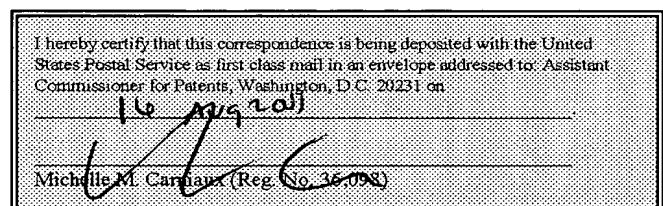 I hereby certify that this correspondence is being deposited with the United
States Postal Service as first class mail in an envelope addressed to: Assistant
Commissioner for Patents, Washington, D.C. 20231 on
16 Aug 2011
Michelle M. Carniaux (Reg. No. 36,098)